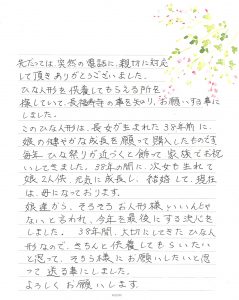 先だっては、突然の電話に、親切に対応
して頂きありがとうございました。
ひな人形を供養してもらえる所を
探していて、長福寿寺の事を知り、お願いする事に
しました。
このひな人形は、長女が生まれた38年前に、
娘の健やかな成長を願って購入したものです。
毎年ひな祭りが近づくと飾って家族でお祝
いしてきました。38年の間に、次女も生れて
娘2人供、元気に成長し、結婚して、現在
は、母になっております。
娘達から、そろそろお人形様いいんじゃ
ないと言われ、今年を最後にする決心を
しました。38年間、大切にしてきたひな人
形なので、きちんと供養してもらいたい
と思って、そちら様にお願いしたいと思
って送る事にしました。
よろしくお願いします。